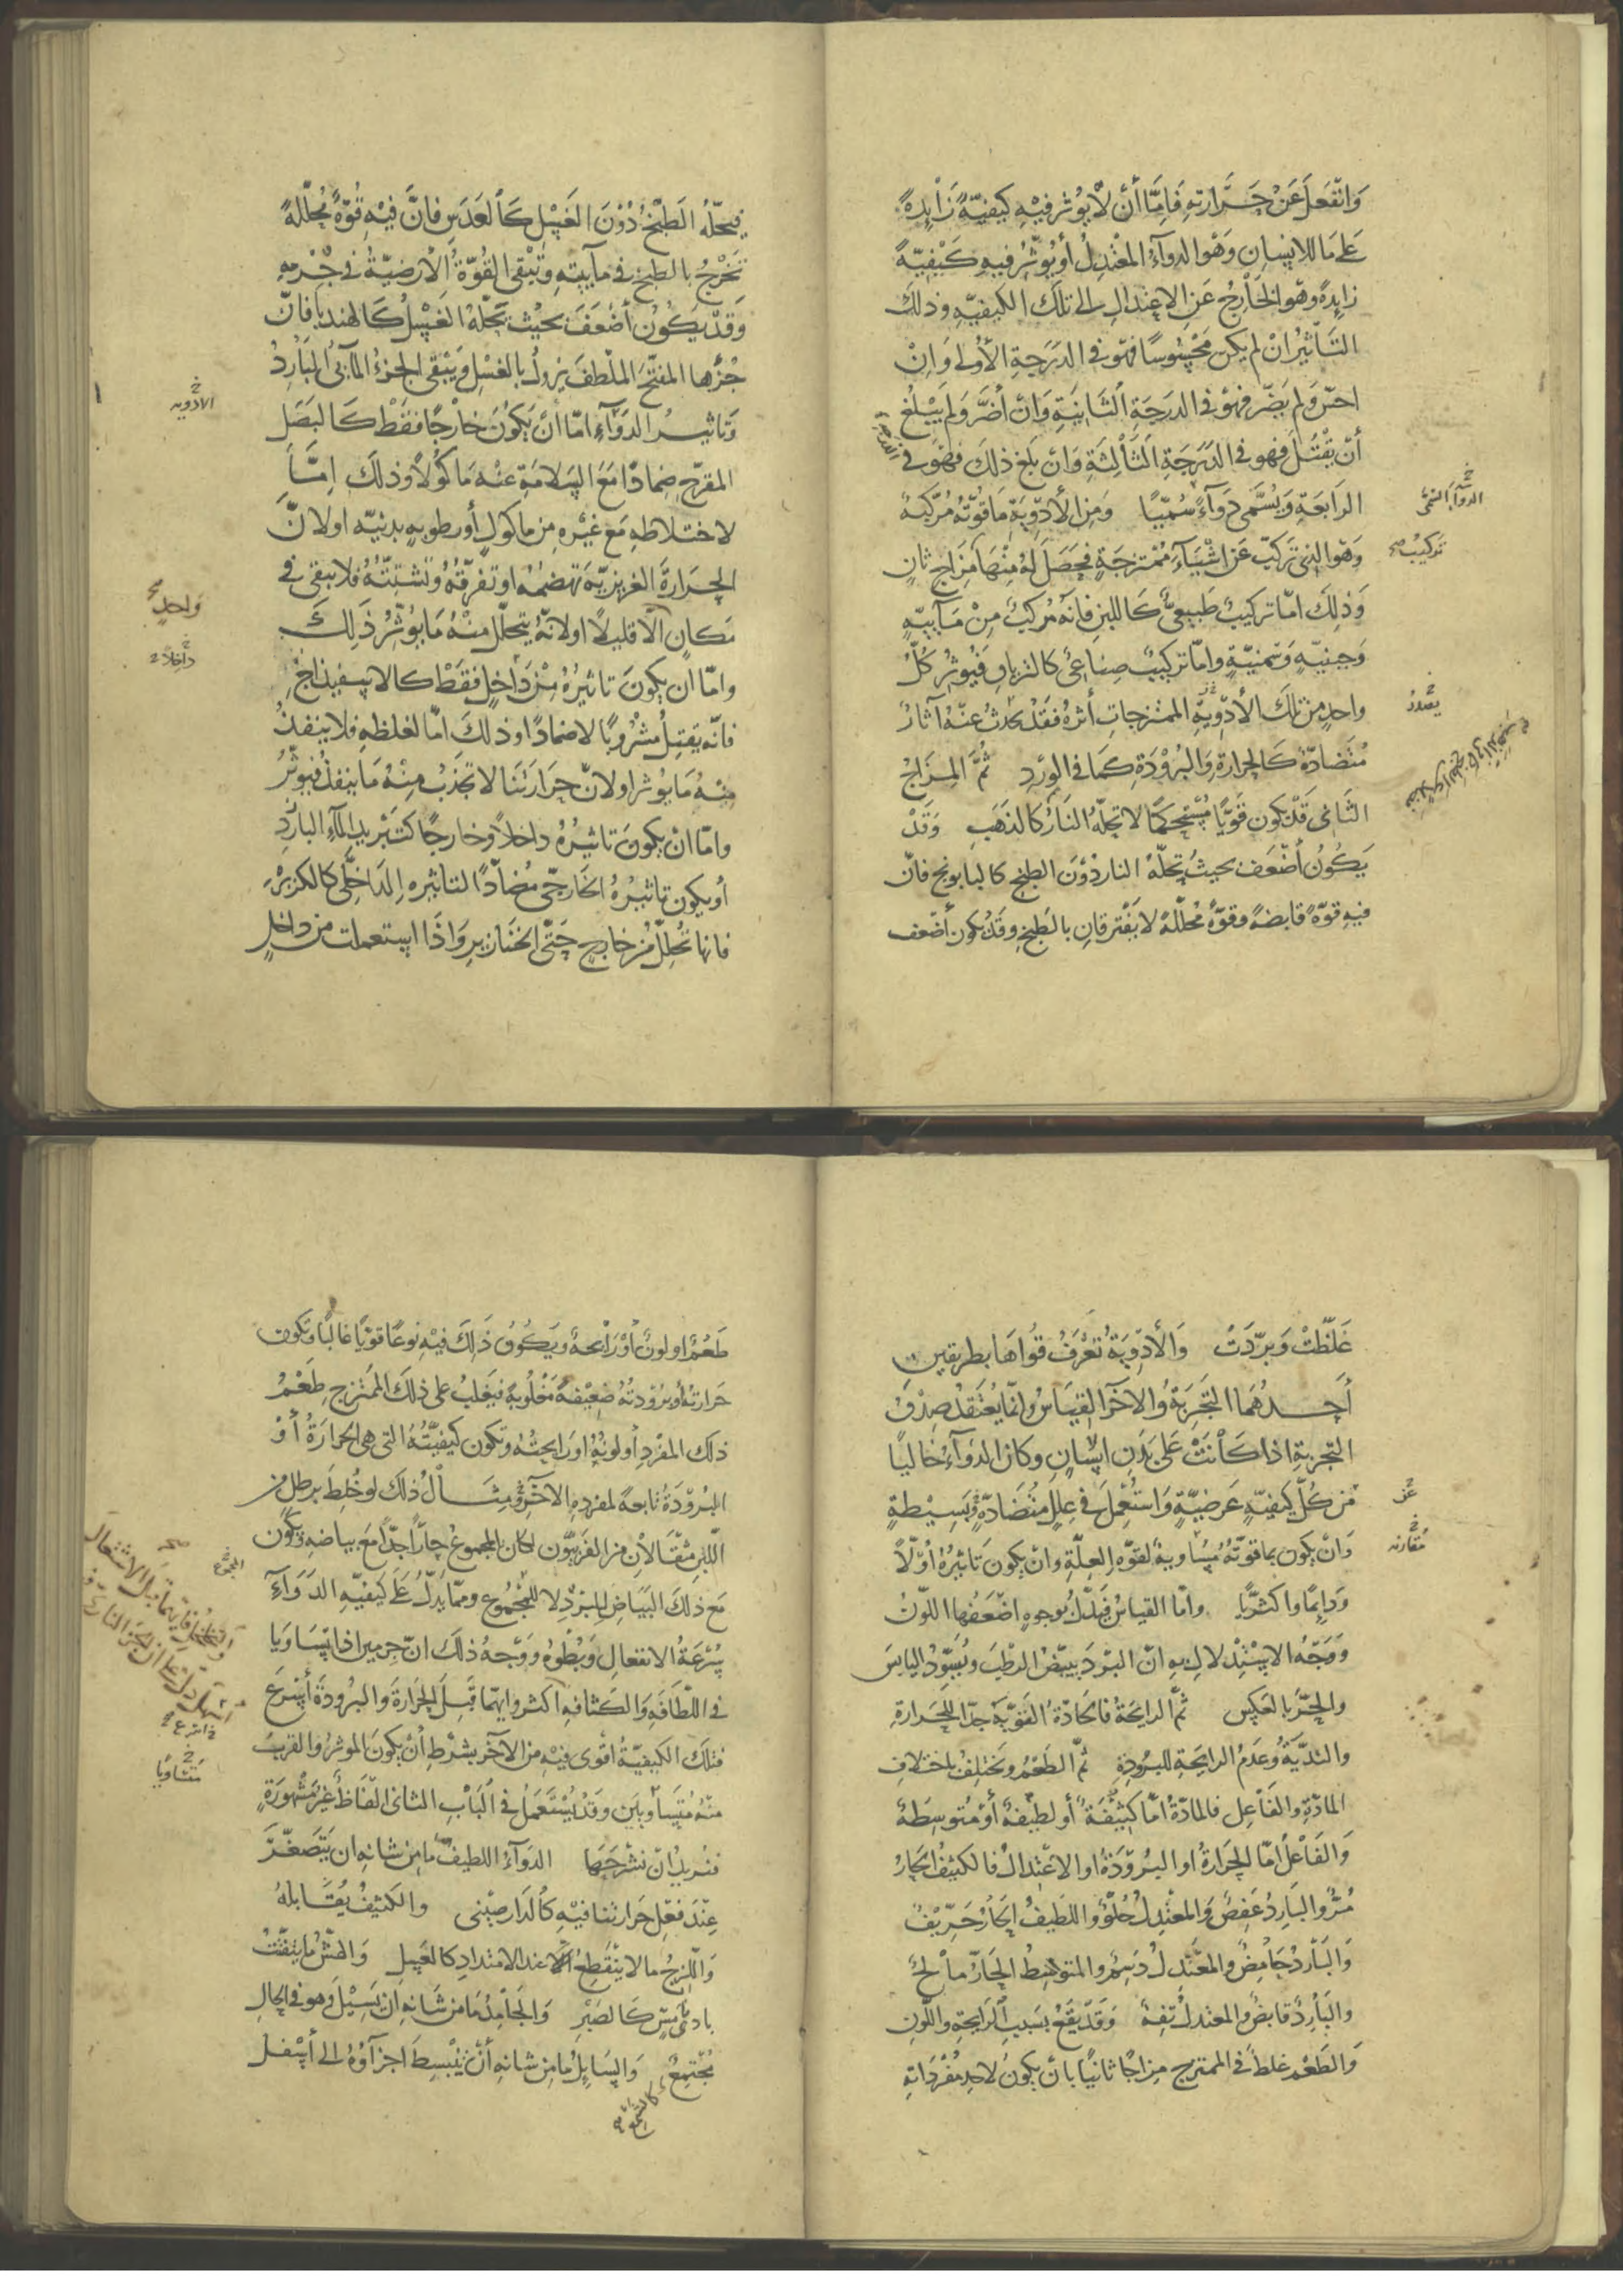 وَانْفَعَلَ عَنْ حَرَارتهِ فَاِمَّا أَنْ لَا يُوثر فيْهِ كيفيّةً زَايدةً
عَلى مَا للانسان وَهْوَ الدوآءُ المعْتدِلُ أو يُوثِّرُ فيهِ كَيْفيّةً
زايدةً وهو الخَارجُ عَنِ الاعتدال الى تلكَ الكيفيّهِ وذلكَ
التَأثيرُ انْ لم يكن مَحْسُوسًا فهو في الدرَجةِ الأولى وَانْ
احسّ ولم يَضرّ فهوَ في الدرَجَةِ الثَانيَةِ وَان أضَرَّ وَلم يَبْلغ
أنْ يَقْتُلَ فهو في الدَرَجَةِ الثَالِثَةِ وَانْ بَلغ ذلكَ فهْوَ في الدرجة
الرَابعَةِ وَيُسَمّى دَوآءً سُمّيًا وَمِنَ الأدْوِيَةِ مَا قُوَّتُهُ مُرَكّبَةٌ
الدوآءَ السّمّى
وَهوَ الذى تركّبَ عَن اشْيَآءَ مُمْتزجَةٍ فحَصَلَ لهُ مِنْهَا مِزَاج ثانٍ
تركيبٌ صح
وَذلكَ امّا تركيبٌ طَبيعىٌّ كَاللبَنِ فانّه مُركبٌ مِنْ مَآئيّةٍ
وَجبنيّهٍ وَسَمنيّةٍ وامّا تركيبٌ صِنَاعىٌّ كالترياقِ فَيُوثرُ كلُّ
واحدٍ من تلكَ الأدْوِيَةِ الممتزجاتِ أثرهُ فقَدْ يحدثُ عَنهُ آثارٌ
يصْدُرُ
مُتضَادّةٌ كَالحرارةِ وَالبُرُوْدَةِ كمَا في الوَرْدِ ثُمَّ المِزَاجُ
الثَانى قَدْ يكونُ قَويًّا مُسْتحكمًا لا تحلّهُ النَارُ كالذَهَبِ وَقَدْ
يَكُونُ أضْعَف بحيثُ تحلّهُ النار دُوْنَ الطبْخِ كالبابونج فانّ
فيهِ قوّةً قابضةً وقوّةً مُحلّلةً لا يَفْترقانِ بالطَبْخِ وقَدْ يكون أضْعَف
فيحلّهُ الطَبْخُ دُوْنَ الغَسْلِ كَالعَدَسِ فانَّ فيْهِ قُوّةً مُحلّلةً
تَخرُجُ بالطبخ في مآئيتِهِ وَتَبْقى القُوّةُ الأرْضيّةُ في جْرْمهِ
وَقدْ يَكُونُ أضْعَفَ بحَيْث تحلّهُ الغَسْلُ كَالهندبا فانّ
جُزْءها المفتّحَ الملّطفَ يزولُ بالغسْلِ وَيَبْقى الجزءُ المآئىُّ البَارِدُ
وَتاثيرُ الدوَآءِ امّا أنْ يَكُونَ خارْجًا فقَطْ كَالبَصَلِ
الادويه
المقرّحِ ضِمادًا مَعَ السَلامَةِ عنْهُ مَاكُوْلاً وَذلكَ امّا
لاختلاطِهِ مَعَ غيْرِهِ مِن ماكولٍ أو رطوبهٍ بدنيّه اولانَّ
الحرَارةَ الغريزيّةَ تهضمُهُ اوتفرّقُهُ وتشتّتُهُ فلا يبقى في
مَكانٍ الّا قليلاً اولانّهُ يتحلّل منْهُ مَا يُوثّرُ ذَلكَ
وَاحدٍ صح
وامّا ان يكونَ تاثيرُهُ مِنْ دَاخِلٍ فقَطْ كالاسفيذاجِ
دَاخِلاً
فانّه يقتِلُ مشْرُوبًا لا ضمادًا وذلكَ امّا لغلظهِ فلا ينفذُ
مِنْهُ مَا يُوثر اولانّ حَرَارَتَنَا لا تجذبُ منْهُ مَا ينفذُ فيوثّرُ
وامّا انْ يكونَ تاثيرُهُ داخلاً وخارجًا كتَبْريدِ المآءِ البَارِد
أو يكون تاثيرُهُ الخارجّى مُضَآدًّا لتاثيرهِ الدَاخلّى كالكزبرة
فانها تُحلّلُ مِن خارجٍ حَتّى الخنَازيرِ وَاذا استعملت من داخلٍ
غَلّظَتْ وَبرّدَتْ وَالأدْوِيَةُ تعْرَفُ قوَاهَا بطريقين
أحدُهُمَا التّجَربَةُ وَالاخَرُ القِيَاسُ وانّمَا يُعْتَقَدُ صِدْقُ
التجربةِ اذا كَانَتْ عَلى بَدَنِ انسانٍ وكانَ الدَوآءُ خاليًا
مِنْ كلِّ كيفيّهٍ عَرضيّةٍ وَاستُعْمِلَ في عِلَلٍ مُتَضَادّةٍ بَسِيْطةٍ
عَن
وَانْ يكون بما قوتّهُ مُسَاويةٌ لقوّهِ العِلّةِ وانْ يكونَ تَاثيرُهُ أوّلاً
مُقارنه
وَدايمًا واكثريًّا وأمّا القيَاسُ فيَدُلّ بُوجوهٍ اضْعَفُها اللّوْنُ
وَوَجْهُ الاسْتِدْلال بهِ انّ البرْدَ يبيّضُ الرطبَ ويُسَوِّدُ اليابس
والحَرّ بالعَكِس ثُمَّ الرايحَةُ فالحادّةُ القَوْيّةُ جدًّا للحَرارةِ
والنديّةُ وَعَدَمُ الرايحَةِ للبرودةِ ثُمّ الطَعْمُ وَيختلِفُ باختلافِ
المادّةِ والفَاعِلِ فالمادّةُ امّا كثيْفَةٌ أو لطيْفةٌ أوْ مُتوسِّطَةٌ
وَالفَاعْلُ امّا الحَرَارَةُ او البرُوْدَةُ او الاعْتدالُ فالكثيفُ الحَارُ
مُرٌّ والبَارِدُ عَفِصٌ وَالمعْتدِلُ حُلْوٌ وَاللَطيفُ الحَارُ حَرِّيْفٌ
وَالبَاردُ حَامِضٌ والمعْتَدِلُ دَسِمٌ والمتوَسِّطُ الحَارُّ مَالحٌ
والبَارِدُ قابضٌ والمعتدلُ تفِهٌ وَقَدْ يَقَعُ بسَبَبِ الرَايحةِ واللّونِ
وَالطَعْمِ غلطٌ في الممتزج مِزاجًا ثانيًا بانْ يكونَ لاحدِ مُفْرَدَاتهِ
طَعْمٌ اولونٌ أوْ رَايحةٌ ويَكُونُ ذَلكَ فيْهِ نوعًا قويًّا غالبًا وتكون
حَرارتهُ أو برُوْدتُهُ ضعيْفةً مَغْلُوبةً فيَغلِبُ على ذلكَ الممتزج طَعْمُ
ذلكَ المفْردِ أو لونُهُ اورَايحتُهُ وتكون كيفيّتُهُ التى هى الحَرارَةُ أوْ
البرُوْدَةُ تابعةً لمفردهِ الآخَرِ وَمثَالُ ذلكَ لو خُلِطَ برطلٍ من
اللّبنِ مثقَالانِ مِنَ الفَرْبيُون لكانَ المجموعُ حَارًّا جدًّا مَعَ بيَاضهِ وَيكُون
مَعَ ذلكَ البيَاضِ للمبَرّدِ لا للمجْمُوعِ وممّا يَدلُّ عَلى كيفيّهِ الدَوآءِ
سُرْعَةُ الانفعالِ وَبُطْوهُ وَوَجهُ ذلكَ انّ جرمين اذا تسَاوَيَا
في اللّطَافَهِ وَالكَثافهِ اكثر وايهما قَبِلَ الحَرارَةَ والبرُودَةَ أسْرَعَ
فتلكَ الكيفيّةُ أقْوى فيْهِ مِن الآخَر بشَرْطِ أنْ يكونَ الموثرُ والقربُ
مُتَساوِيًا
منهُ مُتَسَاويَين وَقَدْ يُسْتَعَمَلُ في البَابِ الثانى الْفَاظٌ غيْرُ مَشْهُورَةٍ
فنريدُ انْ نشْرحَهَا الدَوَآءُ اللطيفُ مَا مِن شانهِ ان يَتصَغّرَ
عِنْدَ فعْلِ حَرارتنا فيْهِ كَالدَارصيْنى والكثيفُ يُقَابلهُ
وَاللّزِجُ ما لا ينْقَطِعُ عند الامْتدادِ كالعَسَلِ وَالهَشُّ مَا يتفتّتُ
بادنى مَسٍّ كَالصَبْرِ وَالجَامِدُ مَا مِن شَانهِ ان يَسِيْلَ وَهو في الحالِ
مُجْتَمِعٌ وَالسَايلُ مَا مِن شانهِ أنْ يَنْبَسِطَ اجزَآؤُهُ الى أسْفلَ
كالشمع